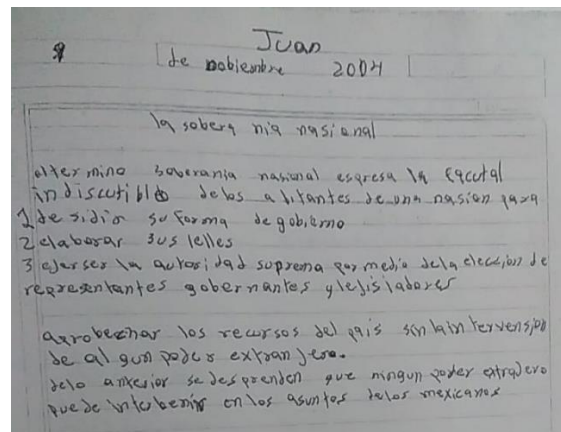 Juan
de nobienbre 2004
la sobera nia nasional
eltermino soberania nasional esqresa la facutal
indiscutible delos abitantes de una nasion para
1 desidir su forma de gobierno
2 elaborar sus lelles
3 ejerser la autoridad suprema por medio dela eleccion de
representantes gobernantes y lejisladores
aprobechar los recursos del pais sin la intervension
de al gun poder extranjero.
delo anterior se desprenden que ningun poder extradero
puede interbenir en los asuntos delos mexicanos